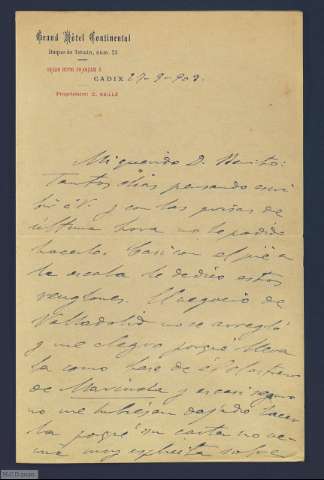 Grand Hôtel Continental
Duque de Tetuán, núm. 23
CADIX 27-9-903.
Mi querido D. Benito:
Tantos días pensando escri
birle á V. y con las prisas de
última hora no he podido
hacerlo. Casi con el pié en
la escala le dedico estos
renglones. El negocio de
Valladolid no se arregló
y me alegro porqué lleva
ba como base de el estreno
de Mariucha y es casi seguro
no me hubieran dejado hacer
la porque su carta no ve
nía muy explícita sobre